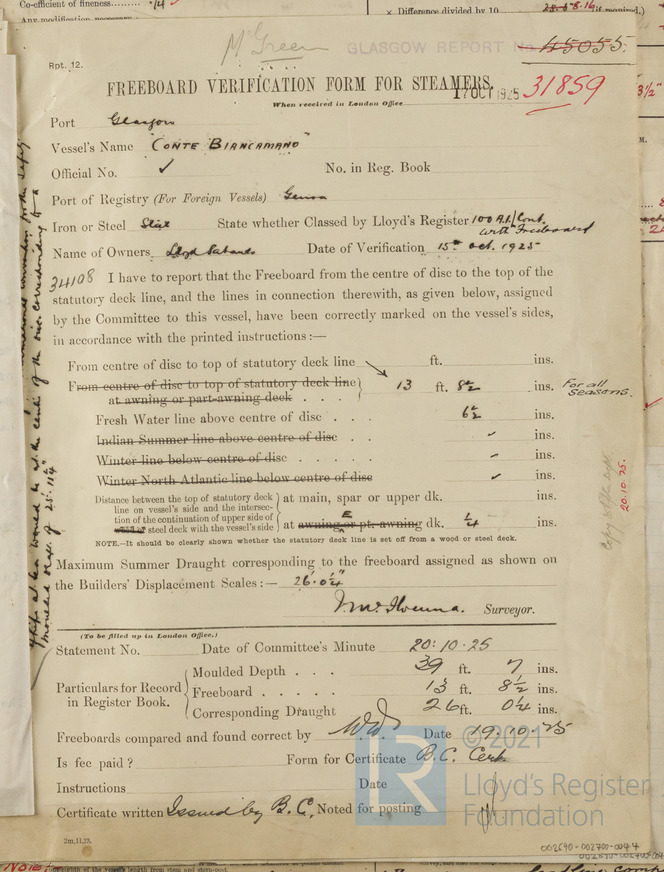 Co-efficient of fineness......... ·14
× Difference divided by 10
if required.)
Any modification
McGreen
GLASGOW REPORT No. 45055
Rpt. 12.
FREEBOARD VERIFICATION FORM FOR STEAMERS.
17 OCT 1925
31859
When received in London Office
Port Glasgow
Vessel's Name "CONTE BIANCAMANO"
Official No. ✓ No. in Reg. Book
Port of Registry (For Foreign Vessels) Genoa
Iron or Steel Steel State whether Classed by Lloyd's Register 100 A.1./Cont.
with Freeboard
Name of Owners Lloyd Sabaudo Date of Verification 15th Oct. 1925
34108 I have to report that the Freeboard from the centre of disc to the top of the
statutory deck line, and the lines in connection therewith, as given below, assigned
by the Committee to this vessel, have been correctly marked on the vessel's sides,
in accordance with the printed instructions:—
From centre of disc to top of statutory deck line ft. ins.
From centre of disc to top of statutory deck line
at awning or part-awning deck . . . 13 ft. 8½ ins. For all seasons.
Fresh Water line above centre of disc . . . 6½ ins.
Indian Summer line above centre of disc . . ✓ ins.
Winter line below centre of disc . . . . . ✓ ins.
Winter North Atlantic line below centre of disc ✓ ins.
Distance between the top of statutory deck
line on vessel's side and the intersec-
tion of the continuation of upper side of
steel deck with the vessel's side
at main, spar or upper dk. ins.
at awning or pt. awning E dk. ¼ ins.
NOTE.—It should be clearly shown whether the statutory deck line is set off from a wood or steel deck.
Maximum Summer Draught corresponding to the freeboard assigned as shown on
the Builders' Displacement Scales:— 26'·0¼"
Surveyor.
20.10.25.
(To be filled up in London Office.)
Statement No. Date of Committee's Minute 20·10·25
Particulars for Record
in Register Book.
Moulded Depth . . . 39 ft. 7 ins.
Freeboard . . . . . 13 ft. 8½ ins.
Corresponding Draught 26 ft. 0¼ ins.
Freeboards compared and found correct by Date 19.10.25
Is fee paid? Form for Certificate B.C. Cert.
Instructions Date
Certificate written Issued by B.C. Noted for posting
2m,11,23.
© 2021
LR
Lloyd's Register
Foundation
002690-002700-0044